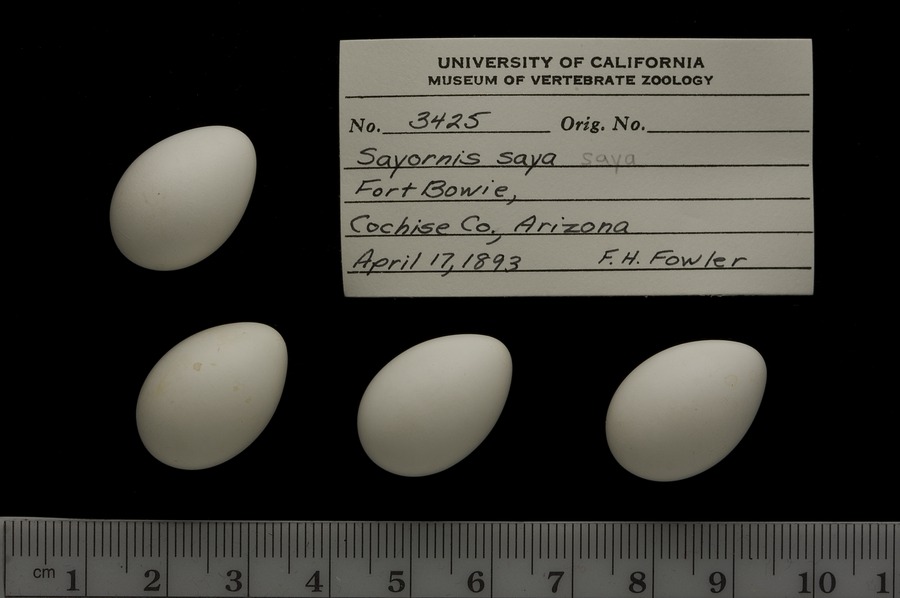 UNIVERSITY OF CALIFORNIA
MUSEUM OF VERTEBRATE ZOOLOGY
No. 3425 Orig. No.
Sayornis saya saya
Fort Bowie,
Cochise Co., Arizona
April 17, 1893 F. H. Fowler
cm 1 2 3 4 5 6 7 8 9 10 1